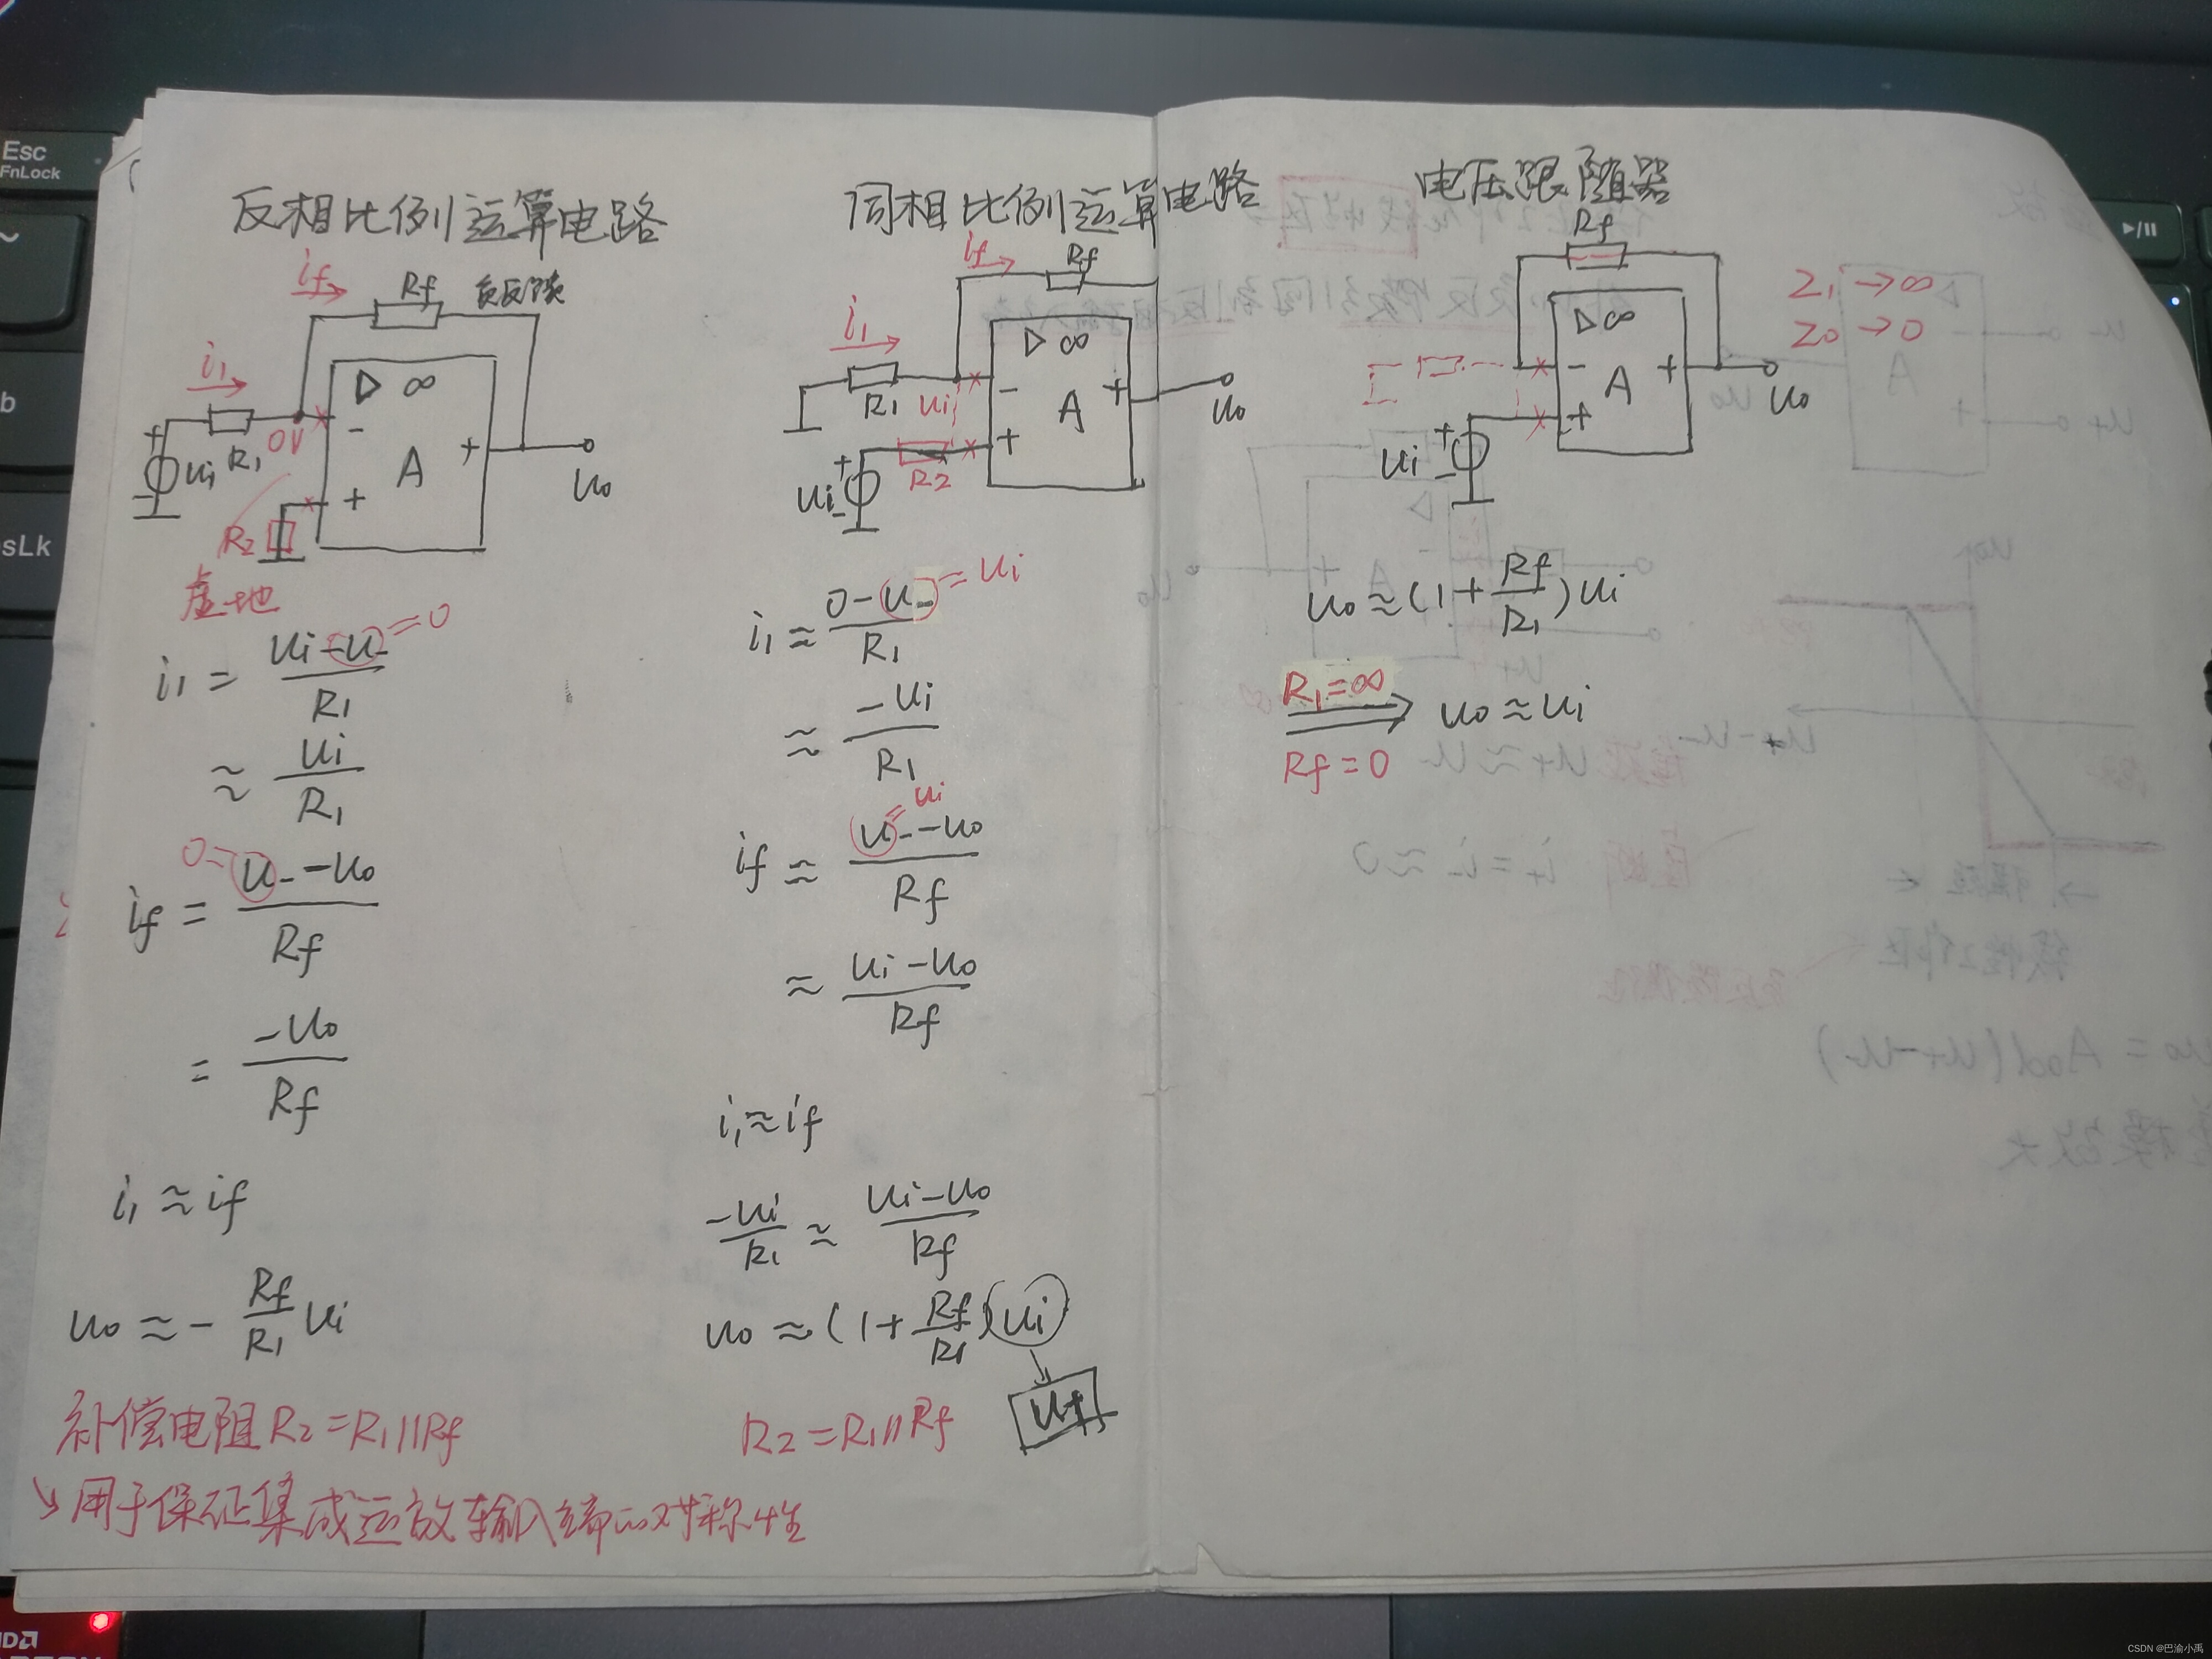 反相比例运算电路
if
Rf 负反馈
i1
▷ ∞
R1
0V
-
A
+
ui
+
-
+
R2
uo
虚地
i1 = (ui - u-)/R1
= 0
≈ ui/R1
0=
if = (u- - uo)/Rf
= -uo/Rf
i1 ≈ if
uo ≈ - Rf/R1 ui
补偿电阻R2=R1//Rf
↘用于保证集成运放输入端的对称性
同相比例运算电路
if
Rf
i1
▷ ∞
R1
ui
-
A
+
+
R2
+
ui
-
uo
i1 ≈ (0 - u-)/R1
= ui
≈ -ui/R1
= ui
if ≈ (u- - uo)/Rf
≈ (ui - uo)/Rf
i1 ≈ if
-ui/R1 ≈ (ui - uo)/Rf
uo ≈ (1 + Rf/R1) ui
u+
R2 = R1//Rf
电压跟随器
Rf
▷ ∞
-
A
+
+
+
ui
-
uo
Zi → ∞
Zo → 0
uo ≈ (1 + Rf/R1) ui
R1 = ∞
⇒ uo ≈ ui
Rf = 0
Esc
FnLock
~
b
sLk
▶/II
CSDN @巴渝小禹